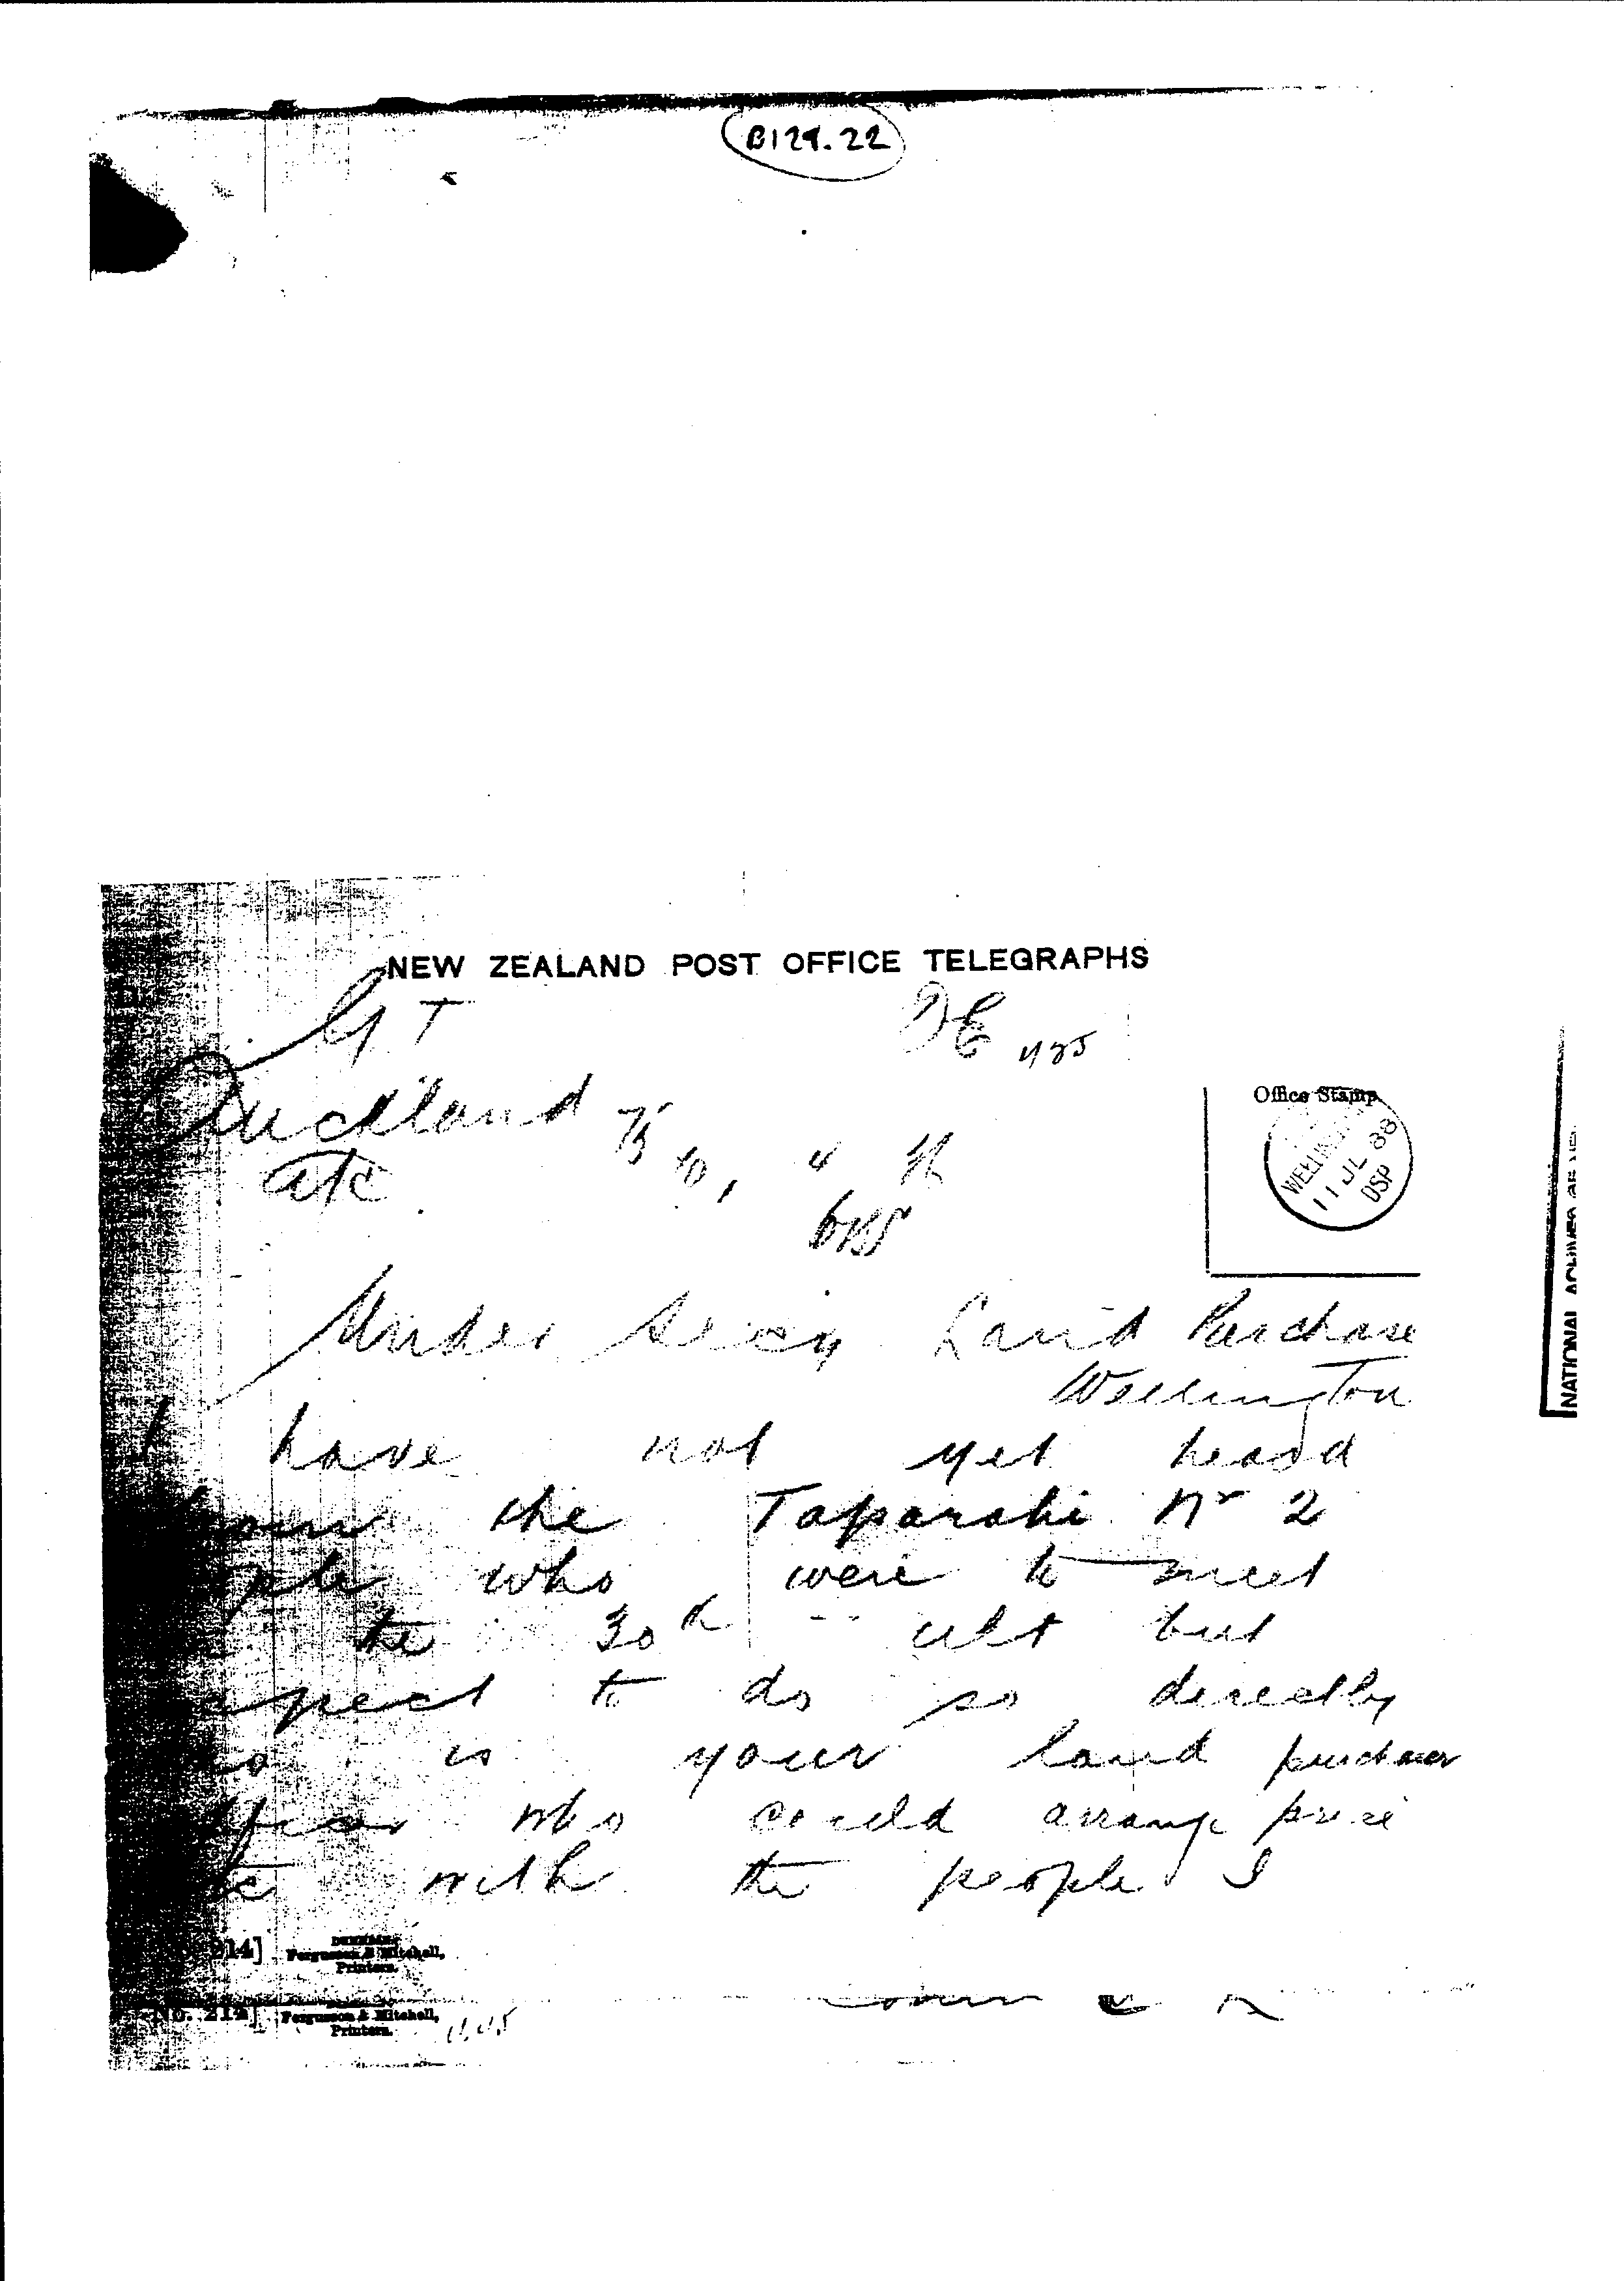 B129.22
NEW ZEALAND POST OFFICE TELEGRAPHS
G. T
Auckland
Office Stamp
WELLIN
11 JL 88
DSP
Under Secy Land Purchase
Wellington
I have not yet heard
from the Taparahi No 2
ople who were to meet
the 30th ult but
xpect to do so directly
is your land purchase
officer who could arrange price
etc with the people I
214] Fergusson & Mitchell,
Printers.
No. 214] Fergusson & Mitchell,
Printers.
NATIONAL